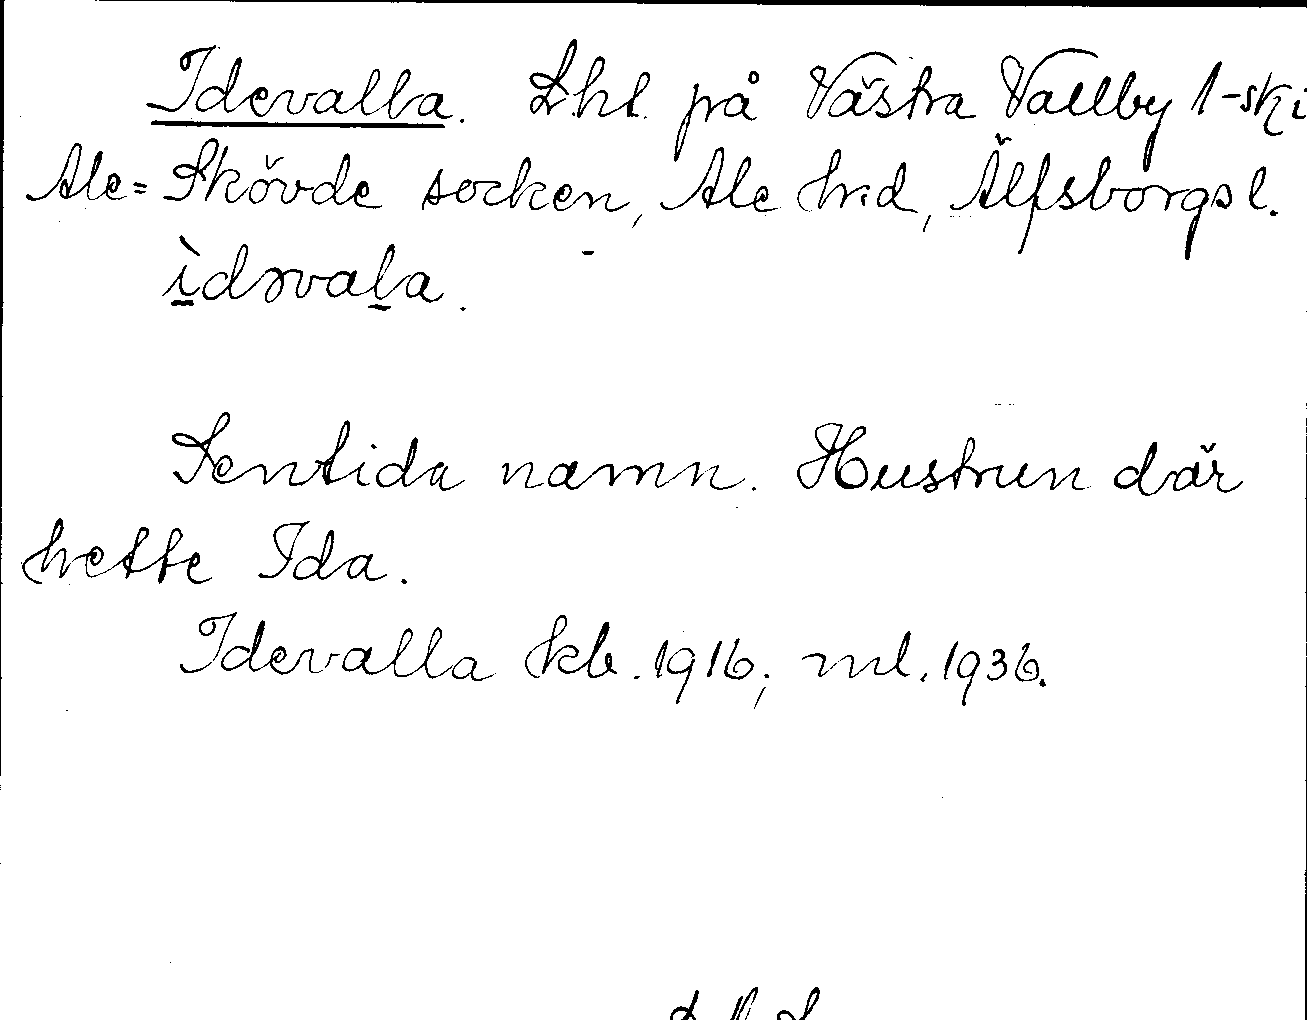 Idevalla. Lht. på Västra Vallby 1-ski
Ale=Skövde socken, Ale hrd, Älfsborgs l.
ìdəvaḷa.
Sentida namn. Hustrun där
hette Ida.
Idevalla kb. 1916; ml. 1936.